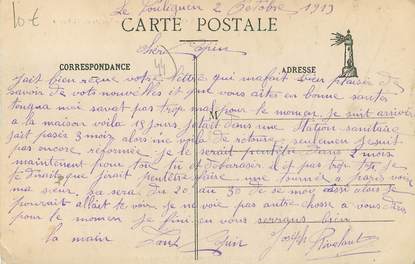 10€
Le Pouliguen 2 Octobre 1913
CARTE POSTALE
Cher Copin
44
CORRESPONDANCE
ADRESSE
M
jait bien reçue votre lettre qui mafait bien plaisir de
savoir de vots nouvelles et que vous aites en bonne santer
mei savat pas trop mal pour le momen. je suit arriver
a la maison voila 18 jours jetait dans une Station sanitaire
jait passer 3 mois alors me voila de retour seulemen jesuit
pas encore réformée je le serait peutetre dans 2 mois
maintenent pour tou tu et débaraser il et pas trop
je girait peutetre faire une tournée a paris voire
ma sieur sa sera du 20 au 30 de se moy ausi alors je
pourait allait te voir je ne voie pas autre chose a vous dire
pour le momen je fini en vous serrans bien
la main Copin Joseph Rivalant